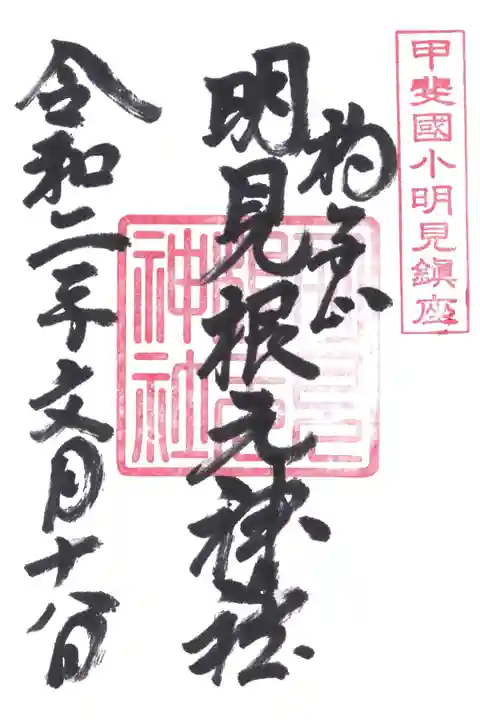 甲斐國小明見鎮座
明見根元神社
令和二年文月十八日
神社